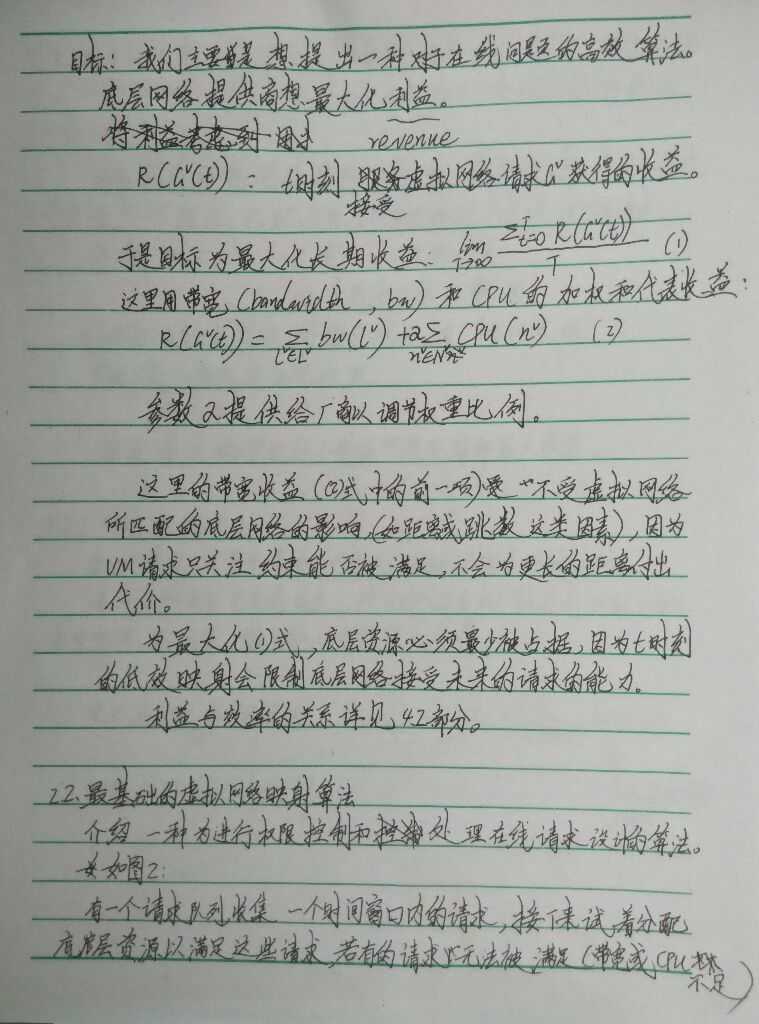 目标：我们主要是想提出一种对于在线问题的高效算法。
底层网络提供商想最大化利益。
将利益考虑到 因求 revenue
R(Gᵛ(t))： t时刻服务虚拟网络请求Gᵛ获得的收益。
接受
于是目标为最大化长期收益： lim T→∞ Σᵀt=0 R(Gᵛ(t)) / T (1)
这里用带宽（bandwidth，bw）和CPU的加权和代表收益：
R(Gᵛ(t)) = Σ lᵛ∈Lᵛ bw(lᵛ) + α Σ nᵛ∈Nᵛ CPU(nᵛ) (2)
参数α提供给厂商以调节权重比例。
这里的带宽收益（(2)式中的前一项）不受虚拟网络
所匹配的底层网络的影响，（如距离或跳数这类因素），因为
VM请求只关注约束能否被满足，不会为更长的距离付出
代价。
为最大化(1)式，底层资源必须最少被占据，因为t时刻
的低效映射会限制底层网络接受未来的请求的能力。
利益与效率的关系详见4.2部分。
2.2.最基础的虚拟网络映射算法
介绍一种为进行权限控制和处理在线请求设计的算法。
如图2：
有一个请求队列收集一个时间窗口内的请求，接下来试着分配
底层资源以满足这些请求，若有的请求无法被满足（带宽或CPU
不足）